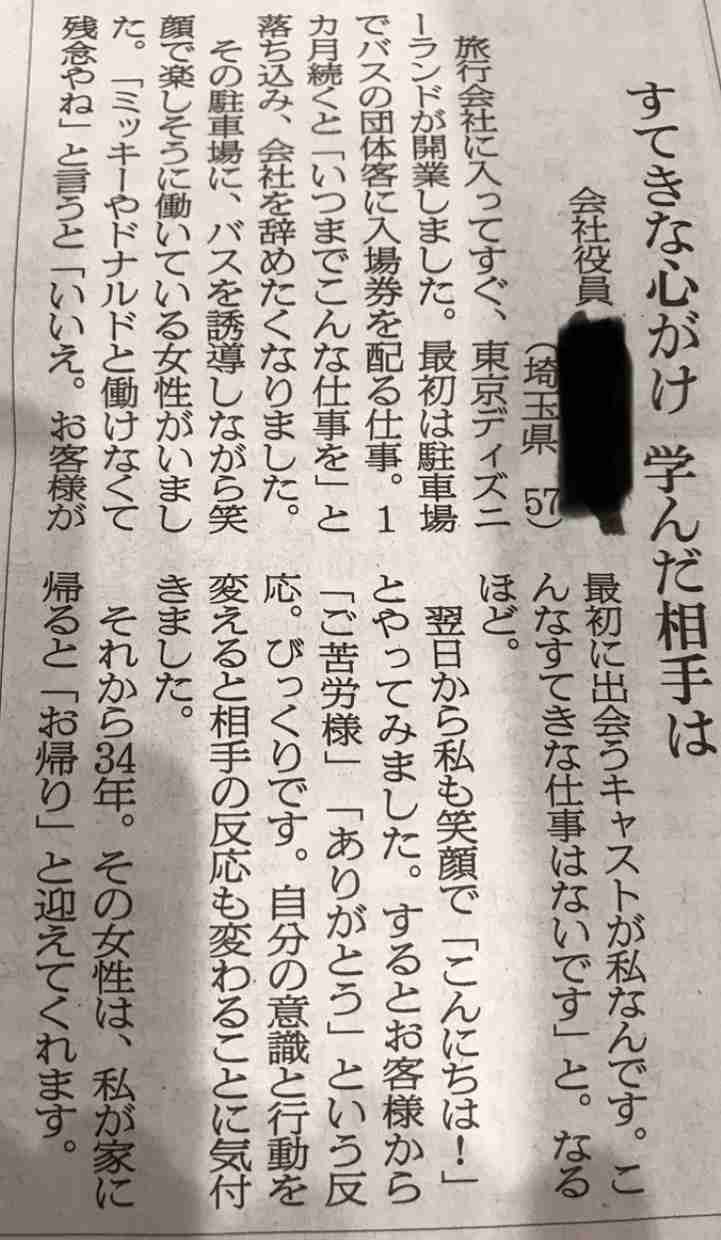 すてきな心がけ 学んだ相手は
会社役員
(埼玉県 57)
旅行会社に入ってすぐ、東京ディズニ
ーランドが開業しました。最初は駐車場
でバスの団体客に入場券を配る仕事。1
カ月続くと「いつまでこんな仕事を」と
落ち込み、会社を辞めたくなりました。
その駐車場に、バスを誘導しながら笑
顔で楽しそうに働いている女性がいまし
た。「ミッキーやドナルドと働けなくて
残念やね」と言うと「いいえ。お客様が
最初に出会うキャストが私なんです。こ
んなすてきな仕事はないです」と。なる
ほど。
翌日から私も笑顔で「こんにちは!」
とやってみました。するとお客様から
「ご苦労様」「ありがとう」という反
応。びっくりです。自分の意識と行動を
変えると相手の反応も変わることに気付
きました。
それから34年。その女性は、私が家に
帰ると「お帰り」と迎えてくれます。